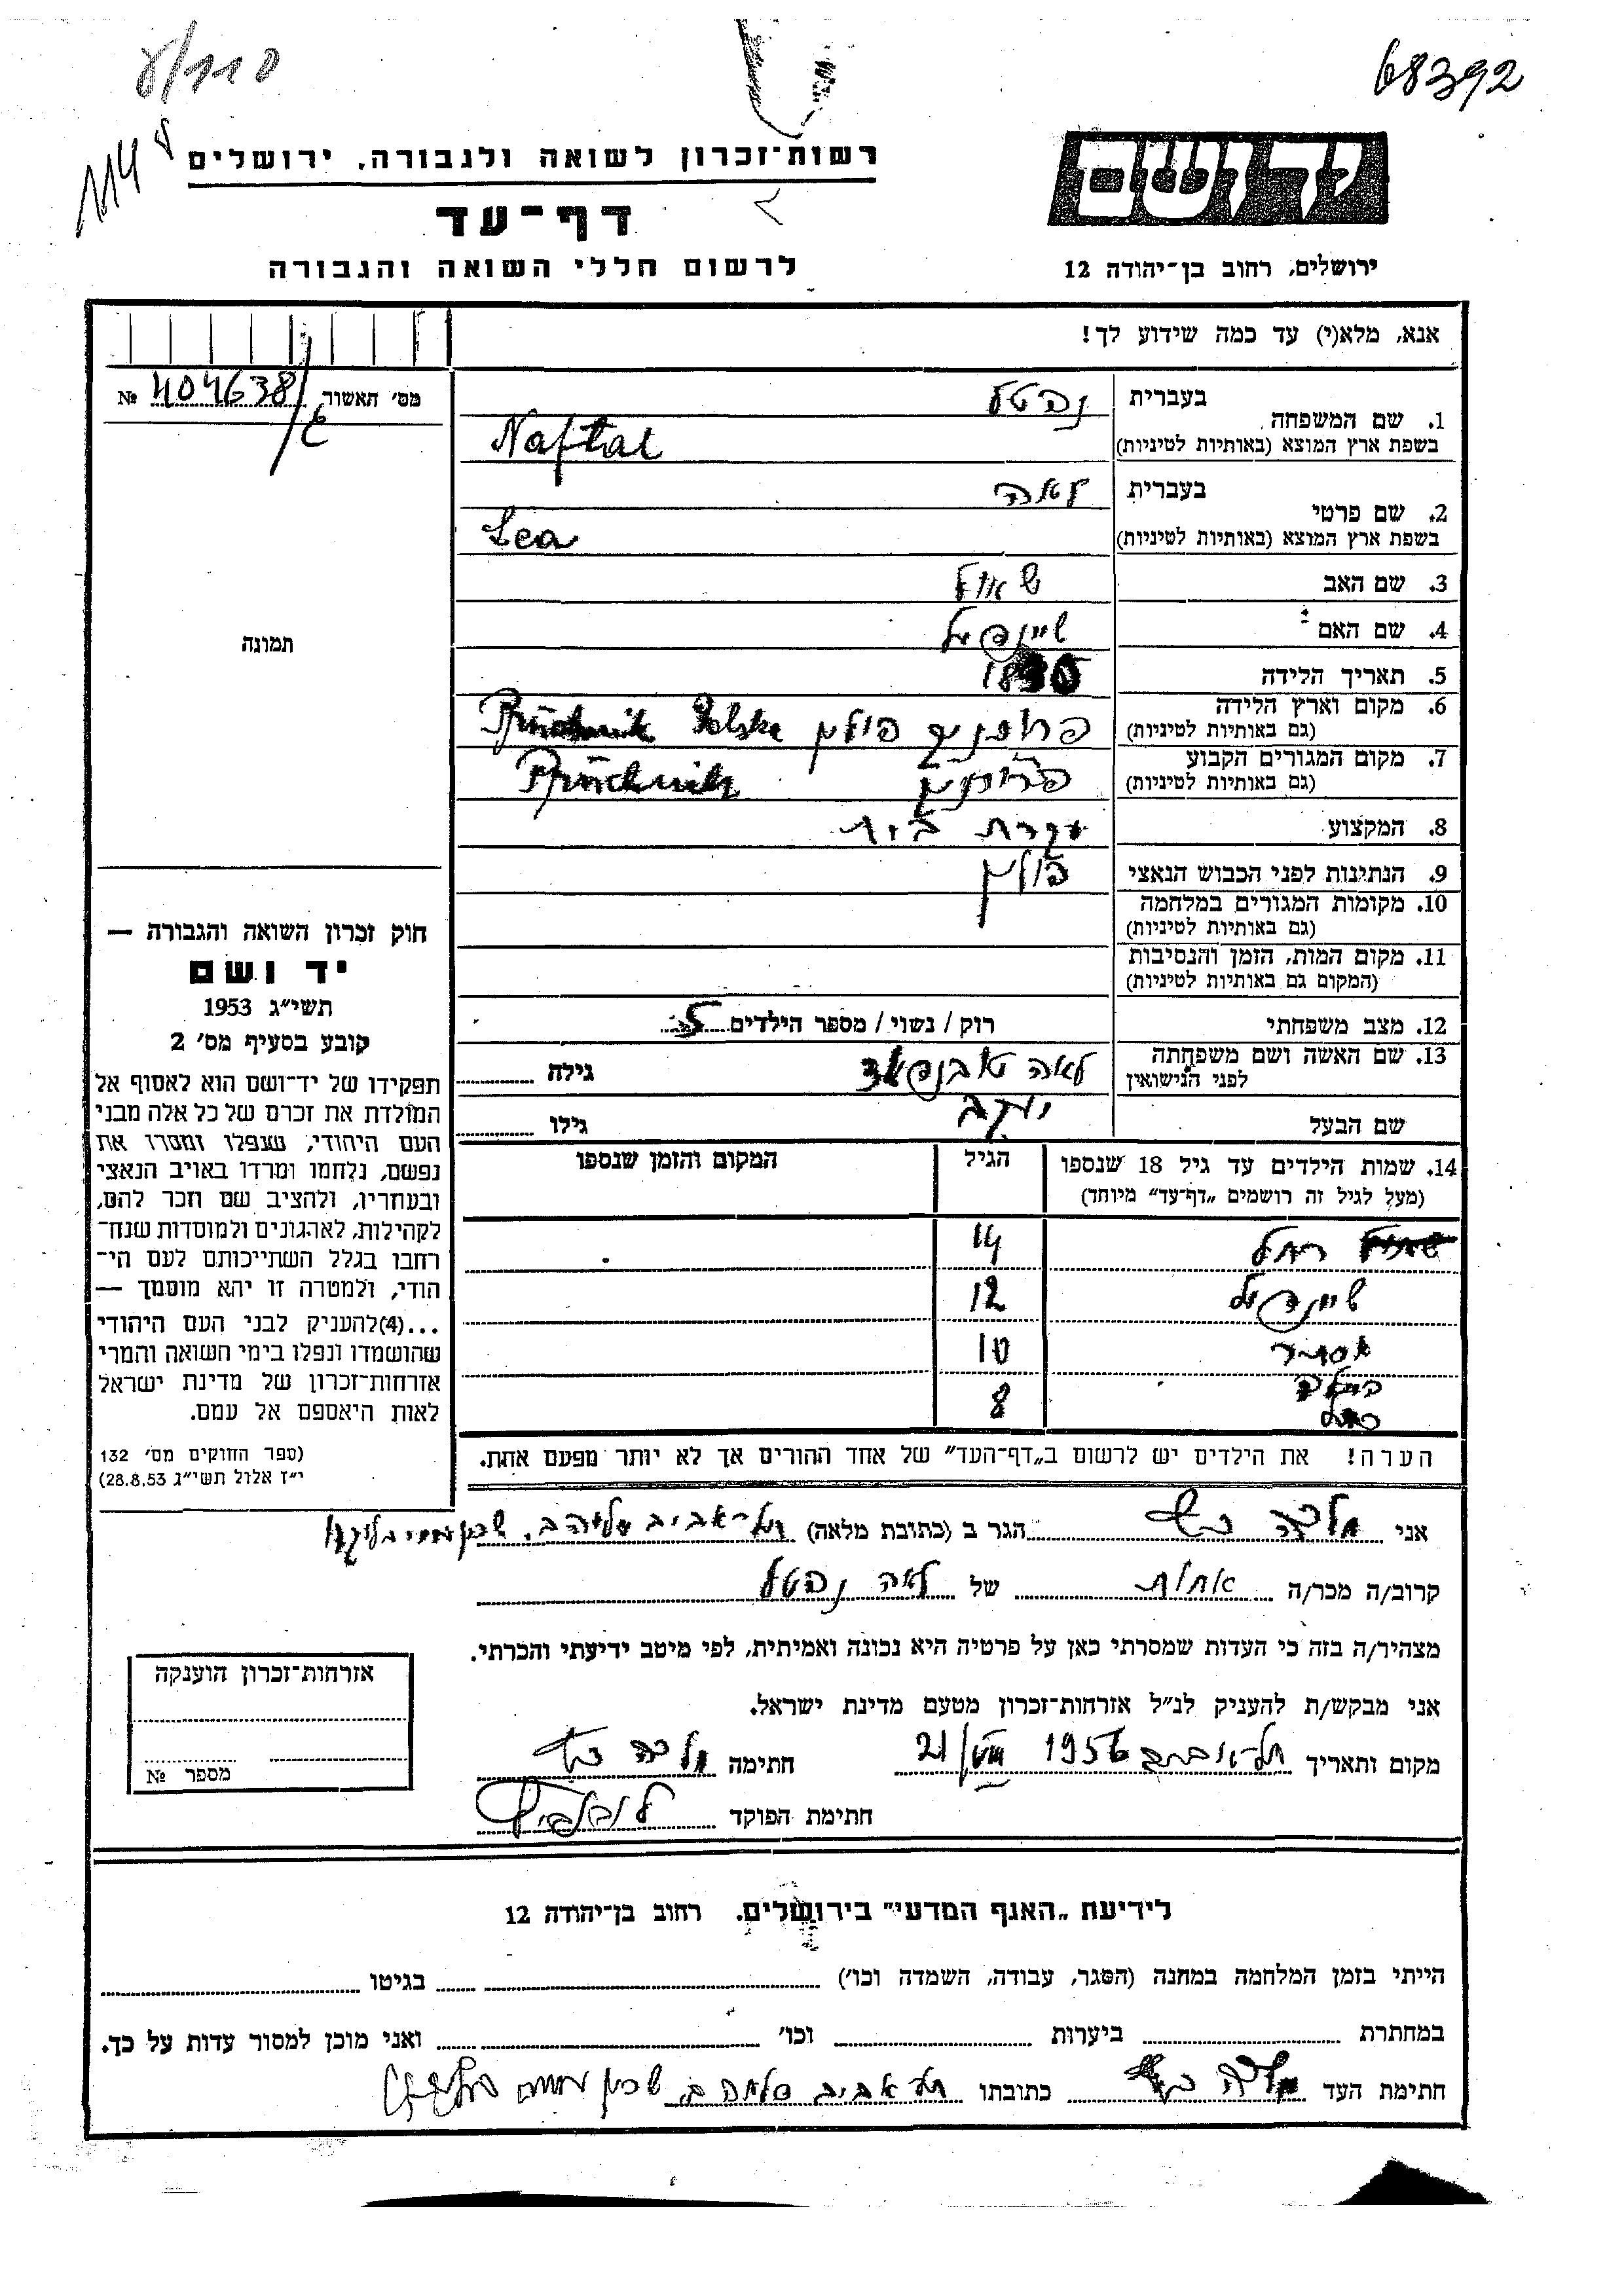 68392
114
רשות־זכרון לשואה ולגבורה, ירושלים
יד ושם
דף־עד
לרשום חללי השואה והגבורה
ירושלים, רחוב בן־יהודה 12
אנא, מלא(י) עד כמה שידוע לך!
מס׳ תאשור № 404638/
1. שם המשפחה בעברית נפטל
בשפת ארץ המוצא (באותיות לטיניות) Naftal
2. שם פרטי בעברית לאה
בשפת ארץ המוצא (באותיות לטיניות) Lea
3. שם האב שאול
4. שם האם שיינדיל
5. תאריך הלידה
6. מקום וארץ הלידה פולין Polska
(גם באותיות לטיניות)
7. מקום המגורים הקבוע Pruchnik
(גם באותיות לטיניות)
8. המקצוע עקרת בית
9. הנתינות לפני הכבוש הנאצי פולין
10. מקומות המגורים במלחמה
(גם באותיות לטיניות)
11. מקום המות, הזמן והנסיבות
(המקום גם באותיות לטיניות)
12. מצב משפחתי רוק / נשוי / מספר הילדים 5
13. שם האשה ושם משפחתה לאה
לפני הנישואין גילה
שם הבעל יעקב גילו
14. שמות הילדים עד גיל 18 שנספו הגיל המקום והזמן שנספו
(מעל לגיל זה רושמים „דף־עד״ מיוחד)
רחל 14
שיינדיל 12
אסתר 10
8
הערה! את הילדים יש לרשום ב„דף־העד״ של אחד ההורים אך לא יותר מפעם אחת.
תמונה
חוק זכרון השואה והגבורה —
יד ושם
תשי״ג 1953
קובע בסעיף מס׳ 2
תפקידו של יד־ושם הוא לאסוף אל
המולדת את זכרם של כל אלה מבני
העם היהודי, שנפלו ומסרו את
נפשם, נלחמו ומרדו באויב הנאצי
ובעוזריו, ולהציב שם וזכר להם,
לקהילות, לארגונים ולמוסדות שנח־
רבו בגלל השתייכותם לעם הי־
הודי, ולמטרה זו יהא מוסמך —
...(4)להעניק לבני העם היהודי
שהושמדו ונפלו בימי השואה והמרי
אזרחות־זכרון של מדינת ישראל
לאות היאספם אל עמם.
(ספר החוקים מס׳ 132
י״ז אלול תשי״ג 28.8.53)
אני מלכה הגר ב (כתובת מלאה) תל־אביב
קרוב/ה מכר/ה אחות של לאה נפטל
מצהיר/ה בזה כי העדות שמסרתי כאן על פרטיה היא נכונה ואמיתית, לפי מיטב ידיעתי והכרתי.
אני מבקש/ת להעניק לנ״ל אזרחות־זכרון מטעם מדינת ישראל.
מקום ותאריך תל־אביב 1956 21/ חתימה מלכה
חתימת הפוקד
אזרחות־זכרון הוענקה
מספר №
לידיעת „האגף המדעי״ בירושלים. רחוב בן־יהודה 12
הייתי בזמן המלחמה במחנה (הסגר, עבודה, השמדה וכו׳) בגיטו
במחתרת ביערות וכו׳ ואני מוכן למסור עדות על כך.
חתימת העד מלכה כתובתו תל אביב